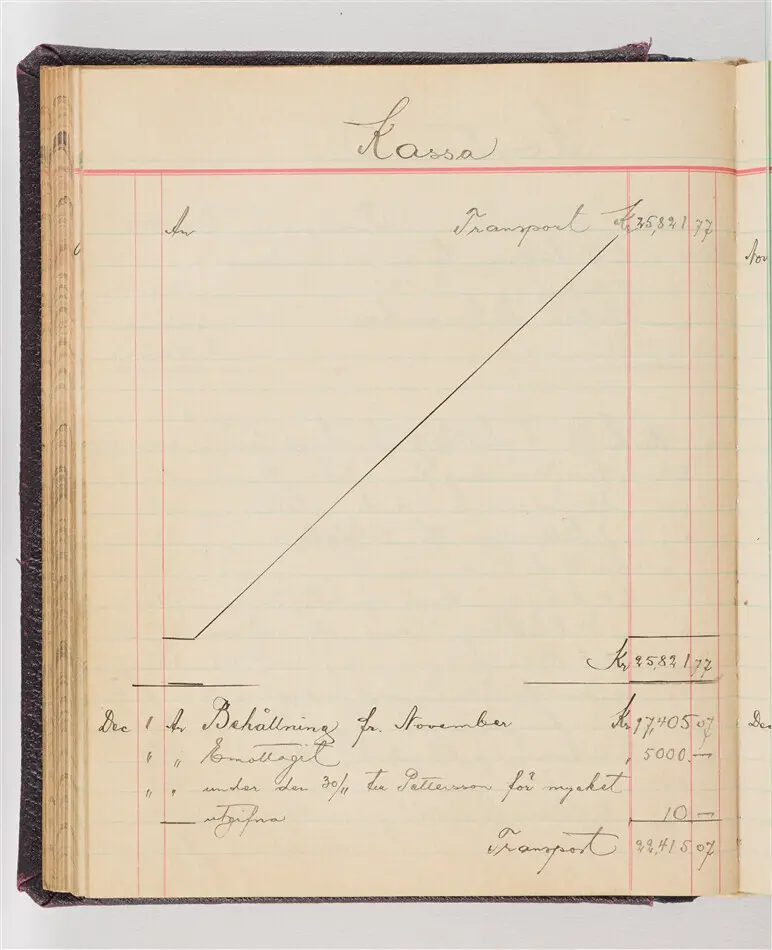 Kassa
An Transport Kr 25,821 77
Nov
Kr 25,821 77
Dec 1 An Behållning fr. November Kr 17,405 07
Dec
" " Emottaget " 5000. —
" " under den 30/11 Pettersson för mycket
utgifna 10 —
Transport 22,415 07